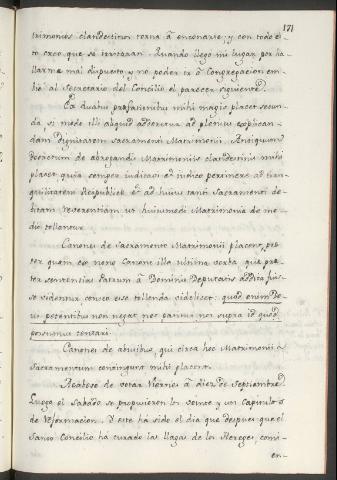 171
trimonios clandestinos torna à enconarse; y con todo es-
to creo que se irritaran. Quando llegò mi lugar por ha-
llarme mal dispuesto y no poder ir à Congregacion em-
biè al Secretario del Concilio el parecer siguiente.
Ex duabus prefationibus mihi magis placet secun-
da si modo illi aliquid addatur ad plenius explican-
dam dignitatem Sacramenti Matrimonii. Antiquum
Decretum de abrogandis Matrimoniis clandestinis mihi
placet, quia semper iudicavi et iudico pertinere ad tran-
quilitatem Reipublicæ et ad huius tanti Sacramenti de-
bitam reverentiam ut huiusmodi Matrimonia de me-
dio tollantur.
Canones de Sacramento Matrimonii placent, præ-
ter quem eo nono Canone illa ultima verba que præ-
ter sententias Patrum à Dominis Deputatis addita fuis-
se videntur censeo esse tollenda videlicet: quod enim De-
us petentibus non neget nec patitur nos supra id quod
possumus tentari.
Canones de abusibus, qui circa hoc Matrimonii
Sacramentum contingunt mihi placent.
Acabose de votar Viernes à diez de Septiembre.
Luego el Sabado se propusieron los veinte y un Capitulos
de Reformacion. Y este ha sido el dia que despues que el
Santo Concilio ha curado la llaga de los Hereges, comi-
en-